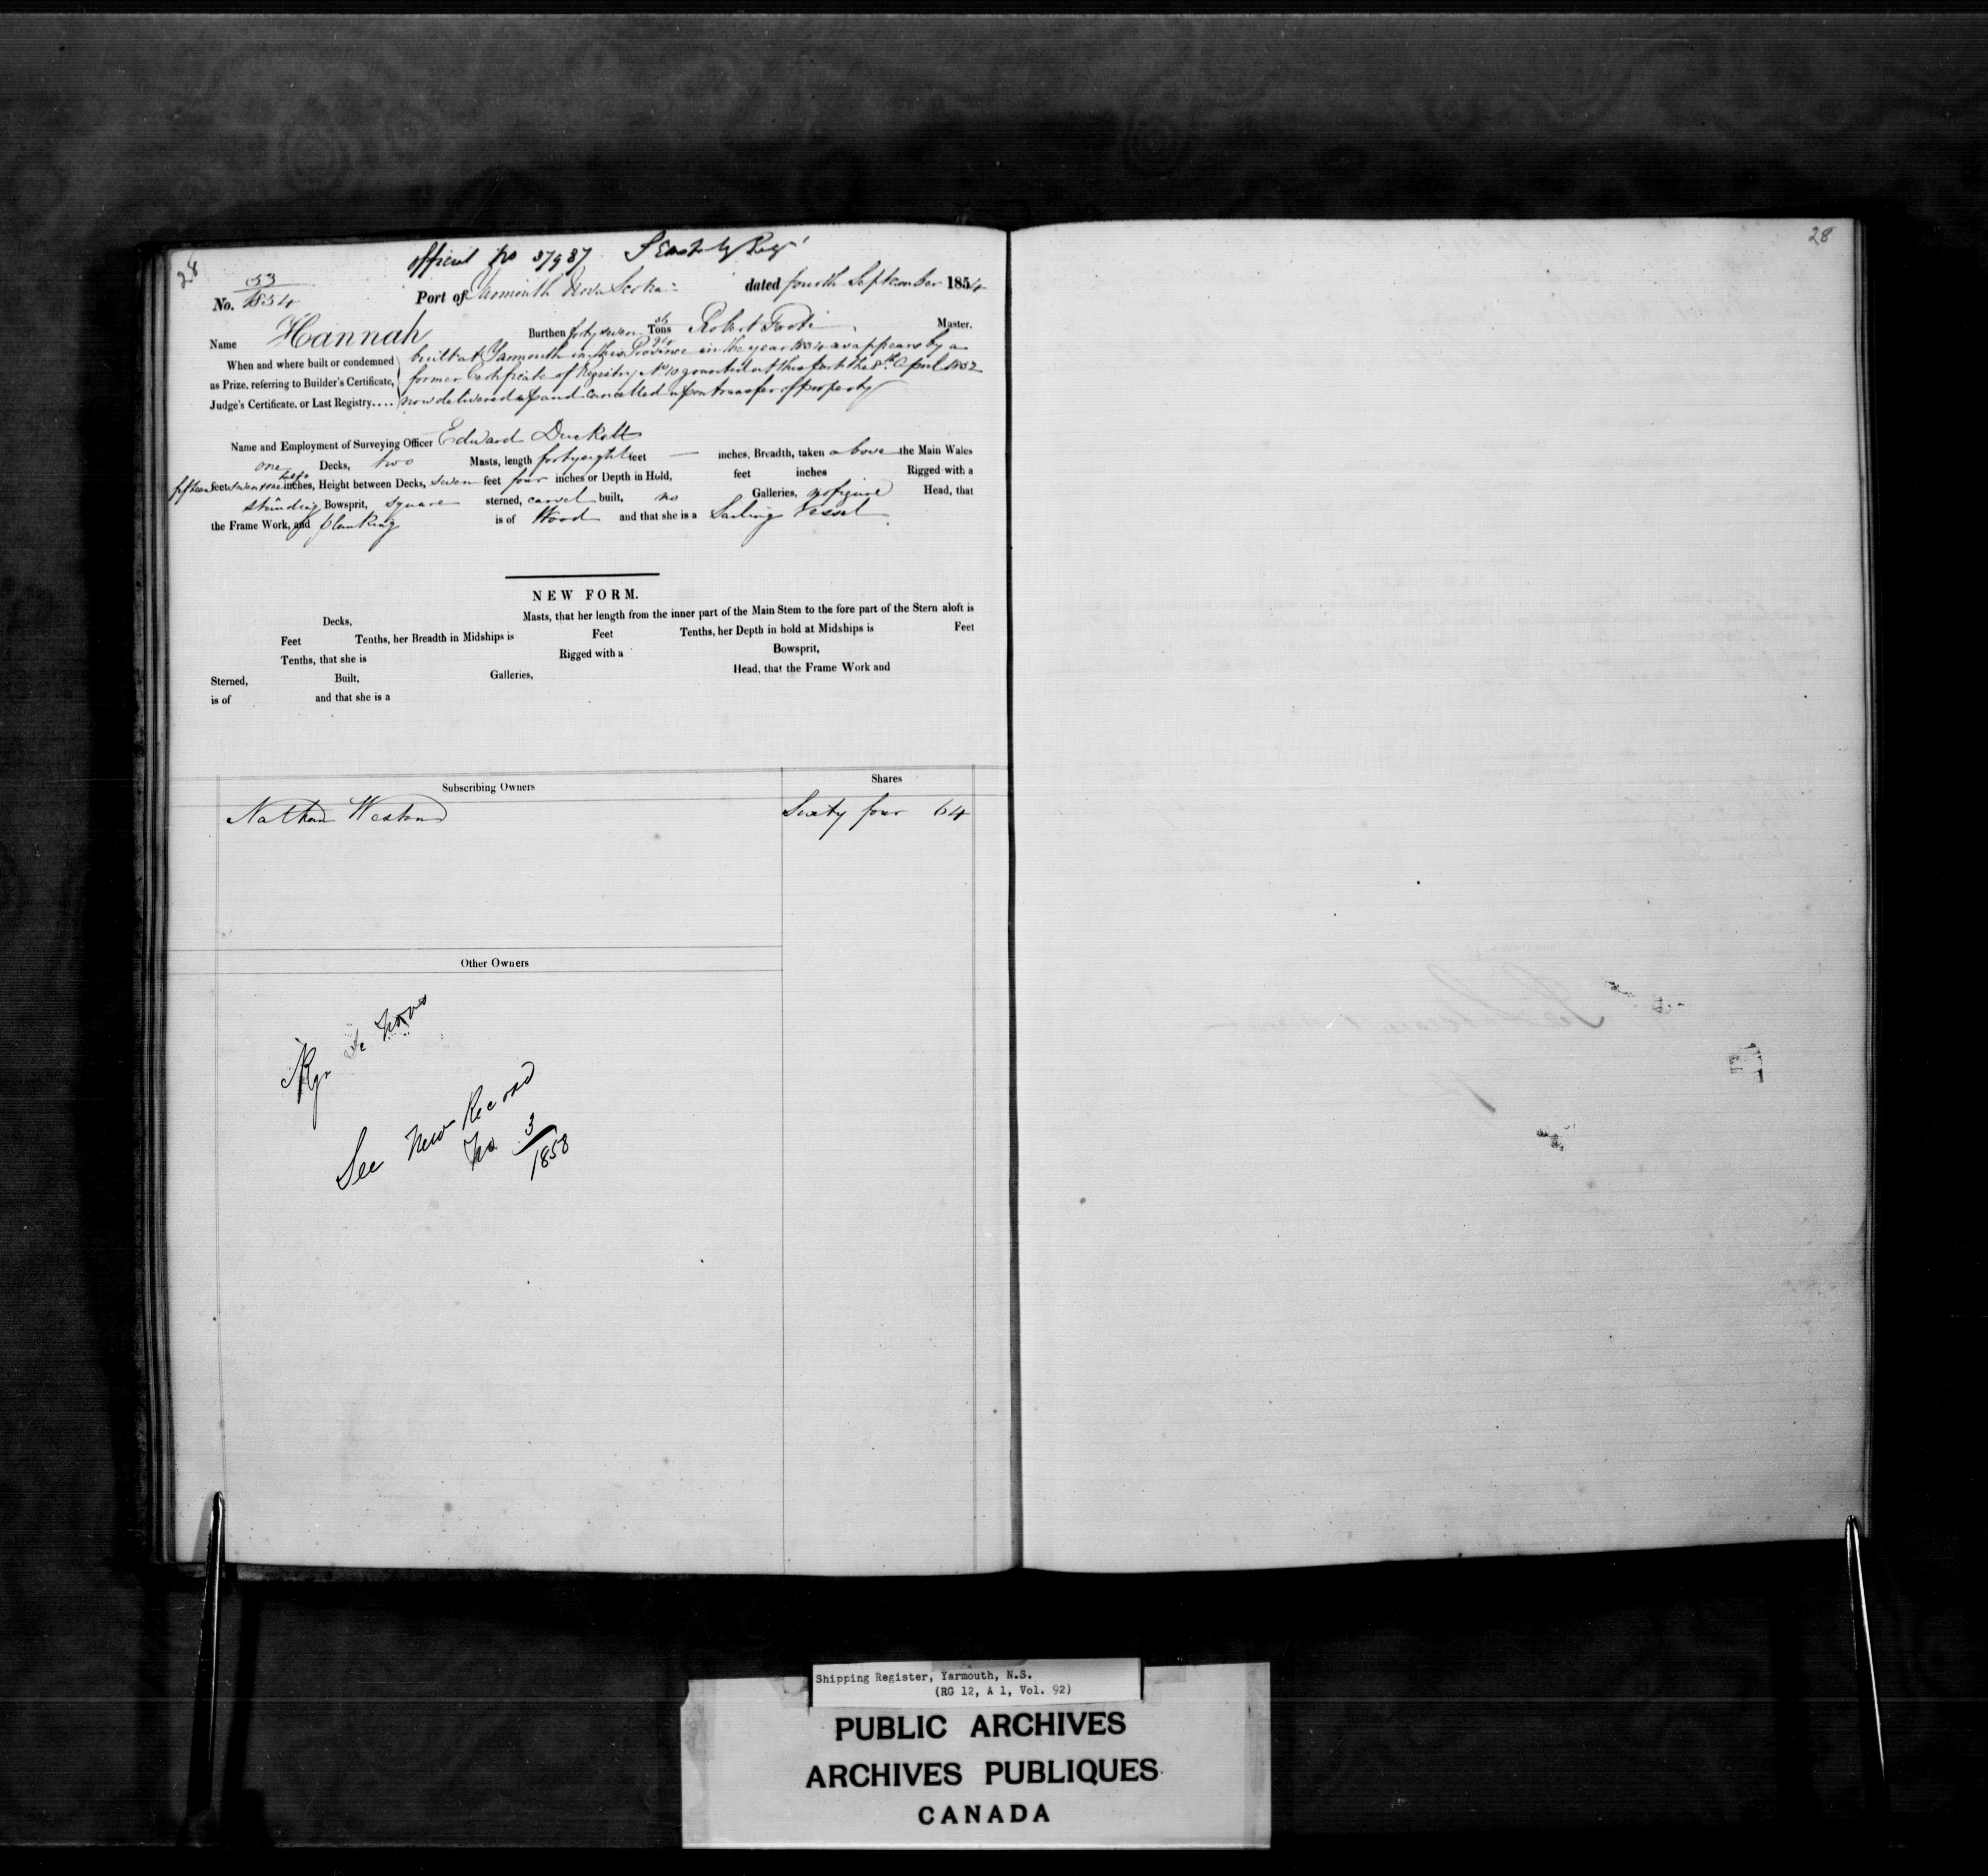 28
official No 37987
No. 53/1854 Port of Yarmouth Nova Scotia dated fourth September 1854
Name Hannah Burthen forty seven Tons Robert Foote Master.
When and where built or condemned as Prize, referring to Builder's Certificate, Judge's Certificate, or Last Registry....
built at Yarmouth in this Province in the year 1834 as appears by a
former Certificate of Registry No 10 granted at this port the 8th April 1852
now delivered up and cancelled upon transfer of property
Name and Employment of Surveying Officer Edward Duckett
one Decks, two Masts, length forty eight feet — inches, Breadth, taken above the Main Wales
fifteen feet inches, Height between Decks, seven feet four inches or Depth in Hold, feet inches Rigged with a
standing Bowsprit, square sterned, carvel built, no Galleries, no figure Head, that
the Frame Work, and planking is of Wood and that she is a Sailing Vessel
NEW FORM.
Decks, Masts, that her length from the inner part of the Main Stem to the fore part of the Stern aloft is
Feet Tenths, her Breadth in Midships is Feet Tenths, her Depth in hold at Midships is Feet
Tenths, that she is Rigged with a Bowsprit,
Sterned, Built, Galleries, Head, that the Frame Work and
is of and that she is a
Subscribing Owners Shares
Nathan Weston Sixty four 64
Other Owners
See New Record
No. 3/1858
28
Shipping Register, Yarmouth, N.S.
(RG 12, A 1, Vol. 92)
PUBLIC ARCHIVES
ARCHIVES PUBLIQUES
CANADA